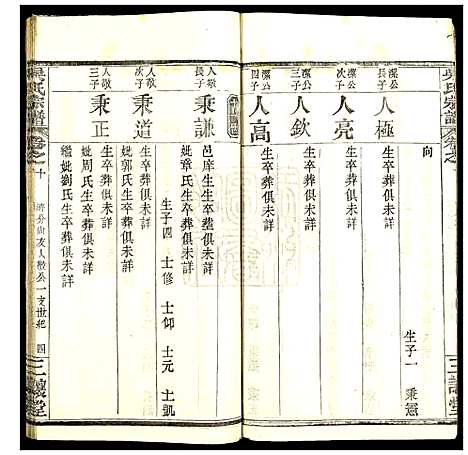 吳氏宗譜
卷之
三讓堂
向
生子一 秉憲
潔公
長子
人極
生卒葬俱未詳
潔公
次子
人亮
生卒葬俱未詳
潔公
三子
人欽
生卒葬俱未詳
潔公
四子
人高
生卒葬俱未詳
人敬
長子
秉謙
邑庠生生卒塟俱未詳
妣章氏生卒葬俱未詳
生子四 士修 士仰 士元 士凱
人敬
次子
秉道
生卒葬俱未詳
妣郭氏生卒葬俱未詳
人敬
三子
秉正
生卒葬俱未詳
妣周氏生卒葬俱未詳
繼妣劉氏生卒葬俱未詳
吳氏宗譜
卷之十
人敬公一支世紀
四
三讓堂